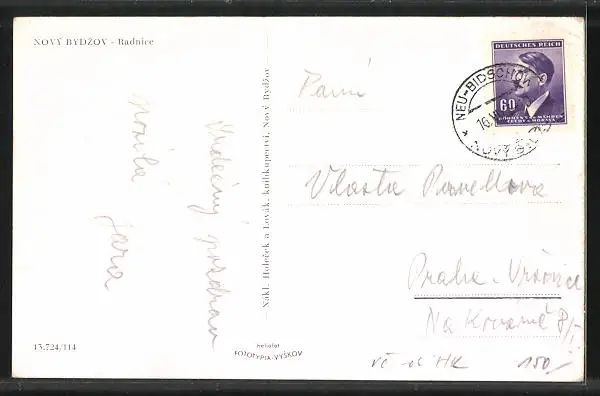 NOVÝ BYDŽOV - Radnice
Srdečný pozdrav
posílá
Jara
13.724/114
Nákl. Holeček a Lovák, knihkupectví, Nový Bydžov
heliolat
FOTOTYPIA-VYŠKOV
DEUTSCHES REICH
60
BÖHMEN U. MÄHREN
ČECHY A MORAVA
NEU-BIDSCHOW
Paní
Vlasta Pavelkova
Praha - Vršovice
Na Kovárně 8/
vč ok HK 150,-